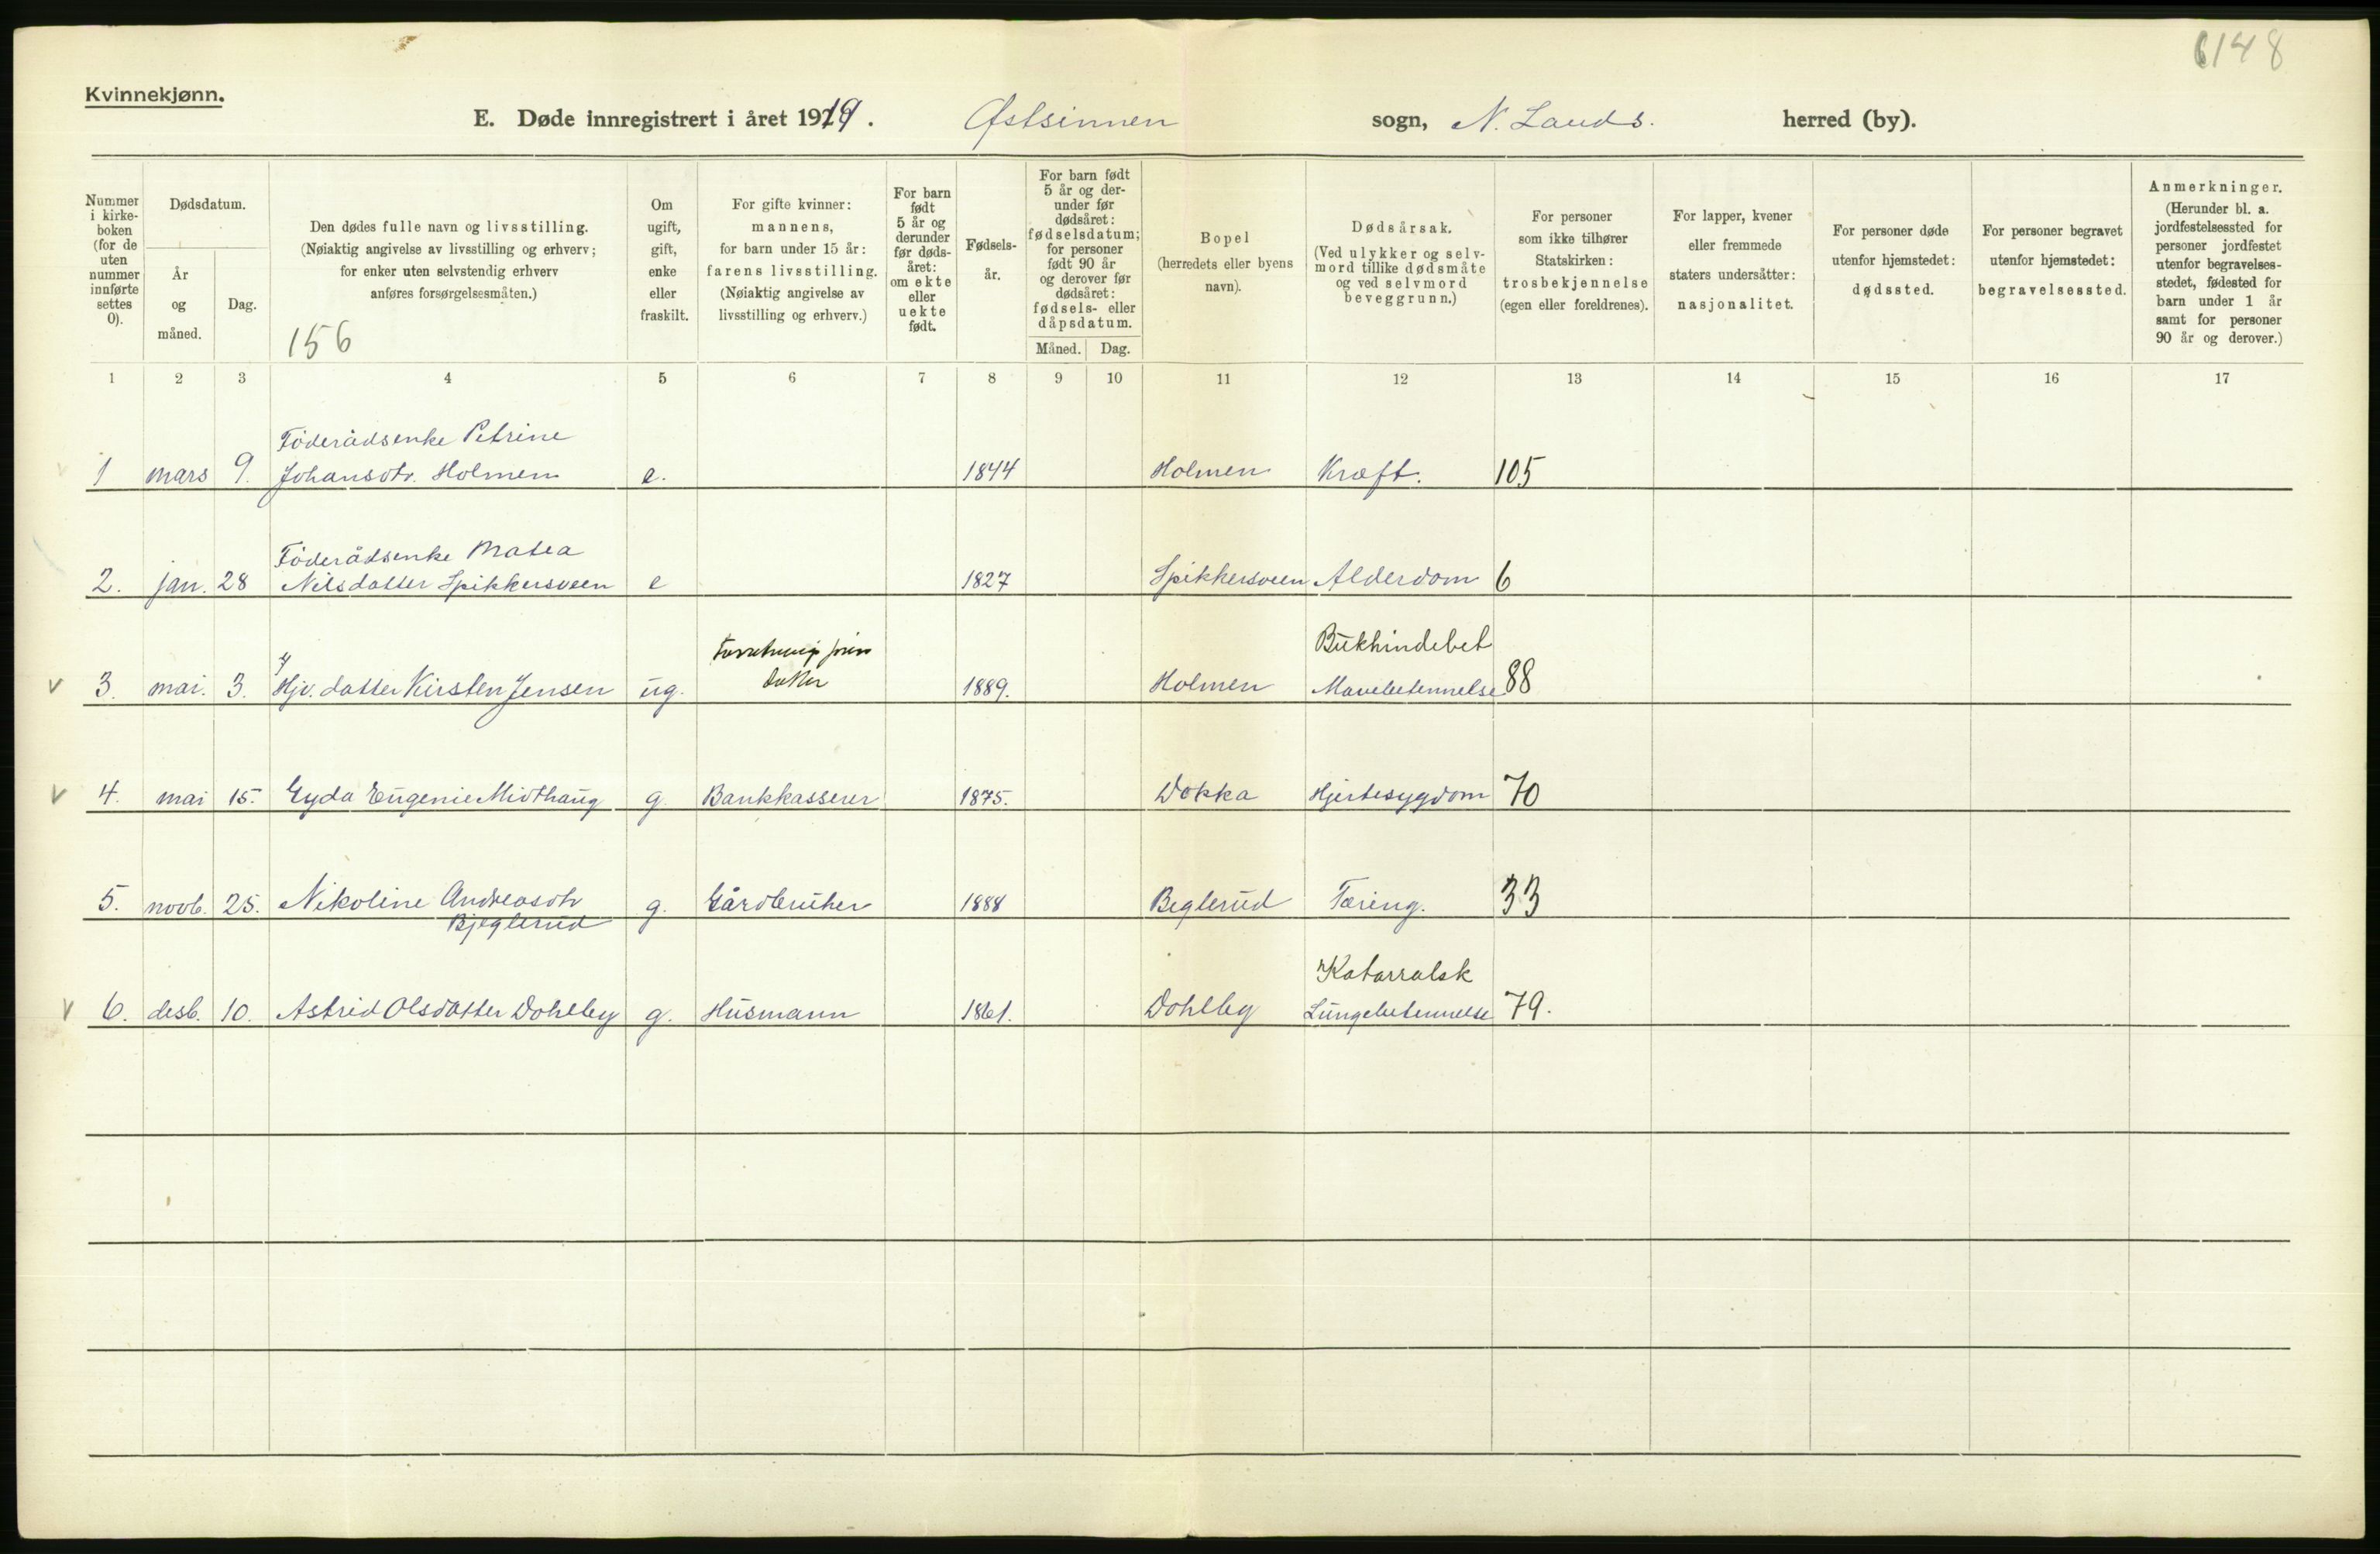 6148
Kvinnekjønn.
E. Døde innregistrert i året 1919. Østsinnen sogn, N. Lands. herred (by).
Nummer i kirke-boken (for de uten nummer innførte settes 0).
Dødsdatum.
År og måned.
Dag.
Den dødes fulle navn og livsstilling.
(Nøiaktig angivelse av livsstilling og erhverv;
for enker uten selvstendig erhverv
anføres forsørgelsesmåten.)
156
Om ugift, gift, enke eller fraskilt.
For gifte kvinner:
mannens,
for barn under 15 år:
farens livsstilling.
(Nøiaktig angivelse av
livsstilling og erhverv.)
For barn født 5 år og derunder før døds-året: om ekte eller uekte født.
Fødsels-år.
For barn født 5 år og der-under før dødsåret: fødselsdatum; for personer født 90 år og derover før dødsåret: fødsels- eller dåpsdatum.
Måned. Dag.
Bopel
(herredets eller byens
navn).
Dødsårsak.
(Ved ulykker og selv-
mord tillike dødsmåte
og ved selvmord
beveggrunn.)
For personer
som ikke tilhører
Statskirken:
trosbekjennelse
(egen eller foreldrenes).
For lapper, kvener
eller fremmede
staters undersåtter:
nasjonalitet.
For personer døde
utenfor hjemstedet:
dødssted.
For personer begravet
utenfor hjemstedet:
begravelsessted.
Anmerkninger.
(Herunder bl. a.
jordfestelsessted for
personer jordfestet
utenfor begravelses-
stedet, fødested for
barn under 1 år
samt for personer
90 år og derover.)
1 2 3 4 5 6 7 8 9 10 11 12 13 14 15 16 17
Föderådsenke Petrine
1 mars 9. Johansdtr. Holmen e. 1844 Holmen Kræft. 105
Föderådsenke Matea
2. jan. 28 Nilsdatter Spikkersveen e 1827 Spikkersveen Alderdom 6
Bukhindebet
3. mai. 3. Hjv. datter Kirsten Jensen ug. datter 1889. Holmen Mavebetennelse 88
4. mai 15. Gyda Eugenie Midthaug g. Bankkasserer 1875. Dokka Hjertesygdom 70
5. novb. 25. Nikoline Andreasdtr g. Gårdbruker 1888 Beglerud Tæring. 33
Bjeglerud
Katarralsk
6. desb. 10. Astrid Olsdatter Dohlby g. Husmann 1861. Dohlby Lungebetennelse 79.